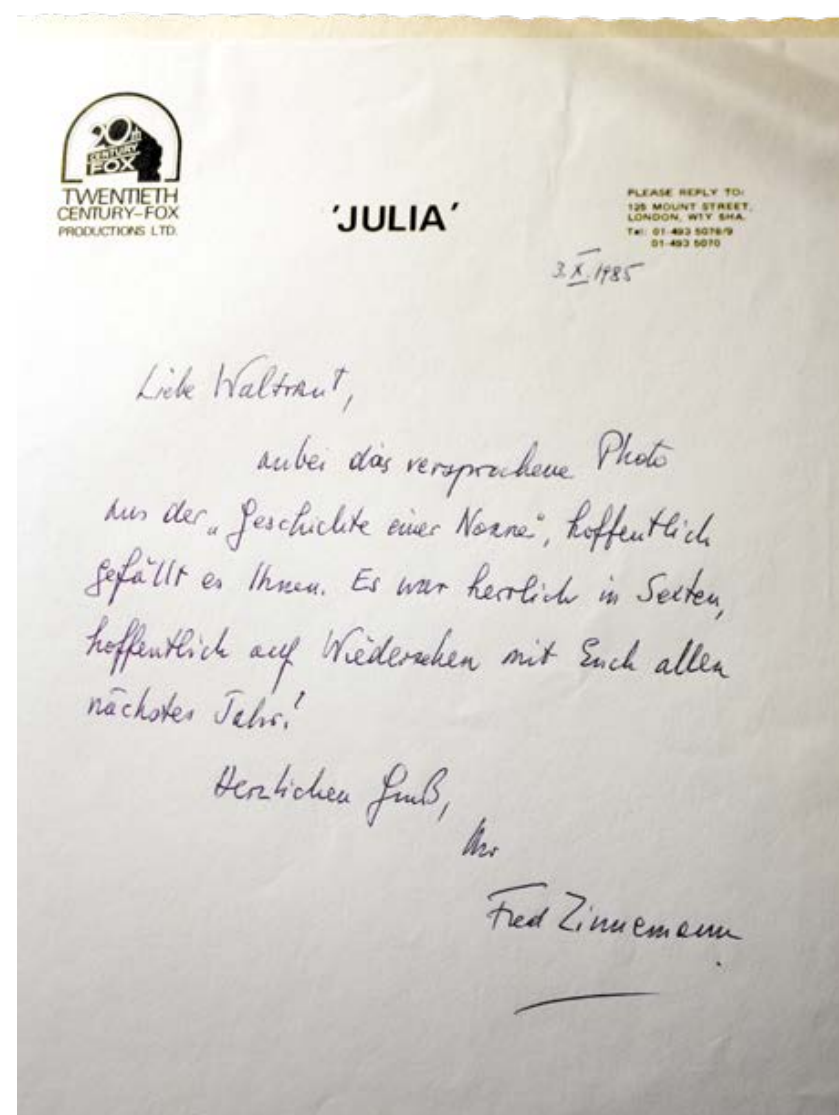 20th
CENTURY
FOX
TWENTIETH
CENTURY-FOX
PRODUCTIONS LTD.
'JULIA'
PLEASE REPLY TO:
125 MOUNT STREET,
LONDON, W1Y 5HA.
Tel: 01-493 5076/9
01-493 5070
3.X.1985
Liebe Waltraut,
anbei das versprochene Photo
aus der „Geschichte einer Nonne“, hoffentlich
gefällt es Ihnen. Es war herrlich in Sexten,
hoffentlich auf Wiedersehen mit Euch allen
nächstes Jahr!
Herzlichen Gruß,
Ihr
Fred Zinnemann